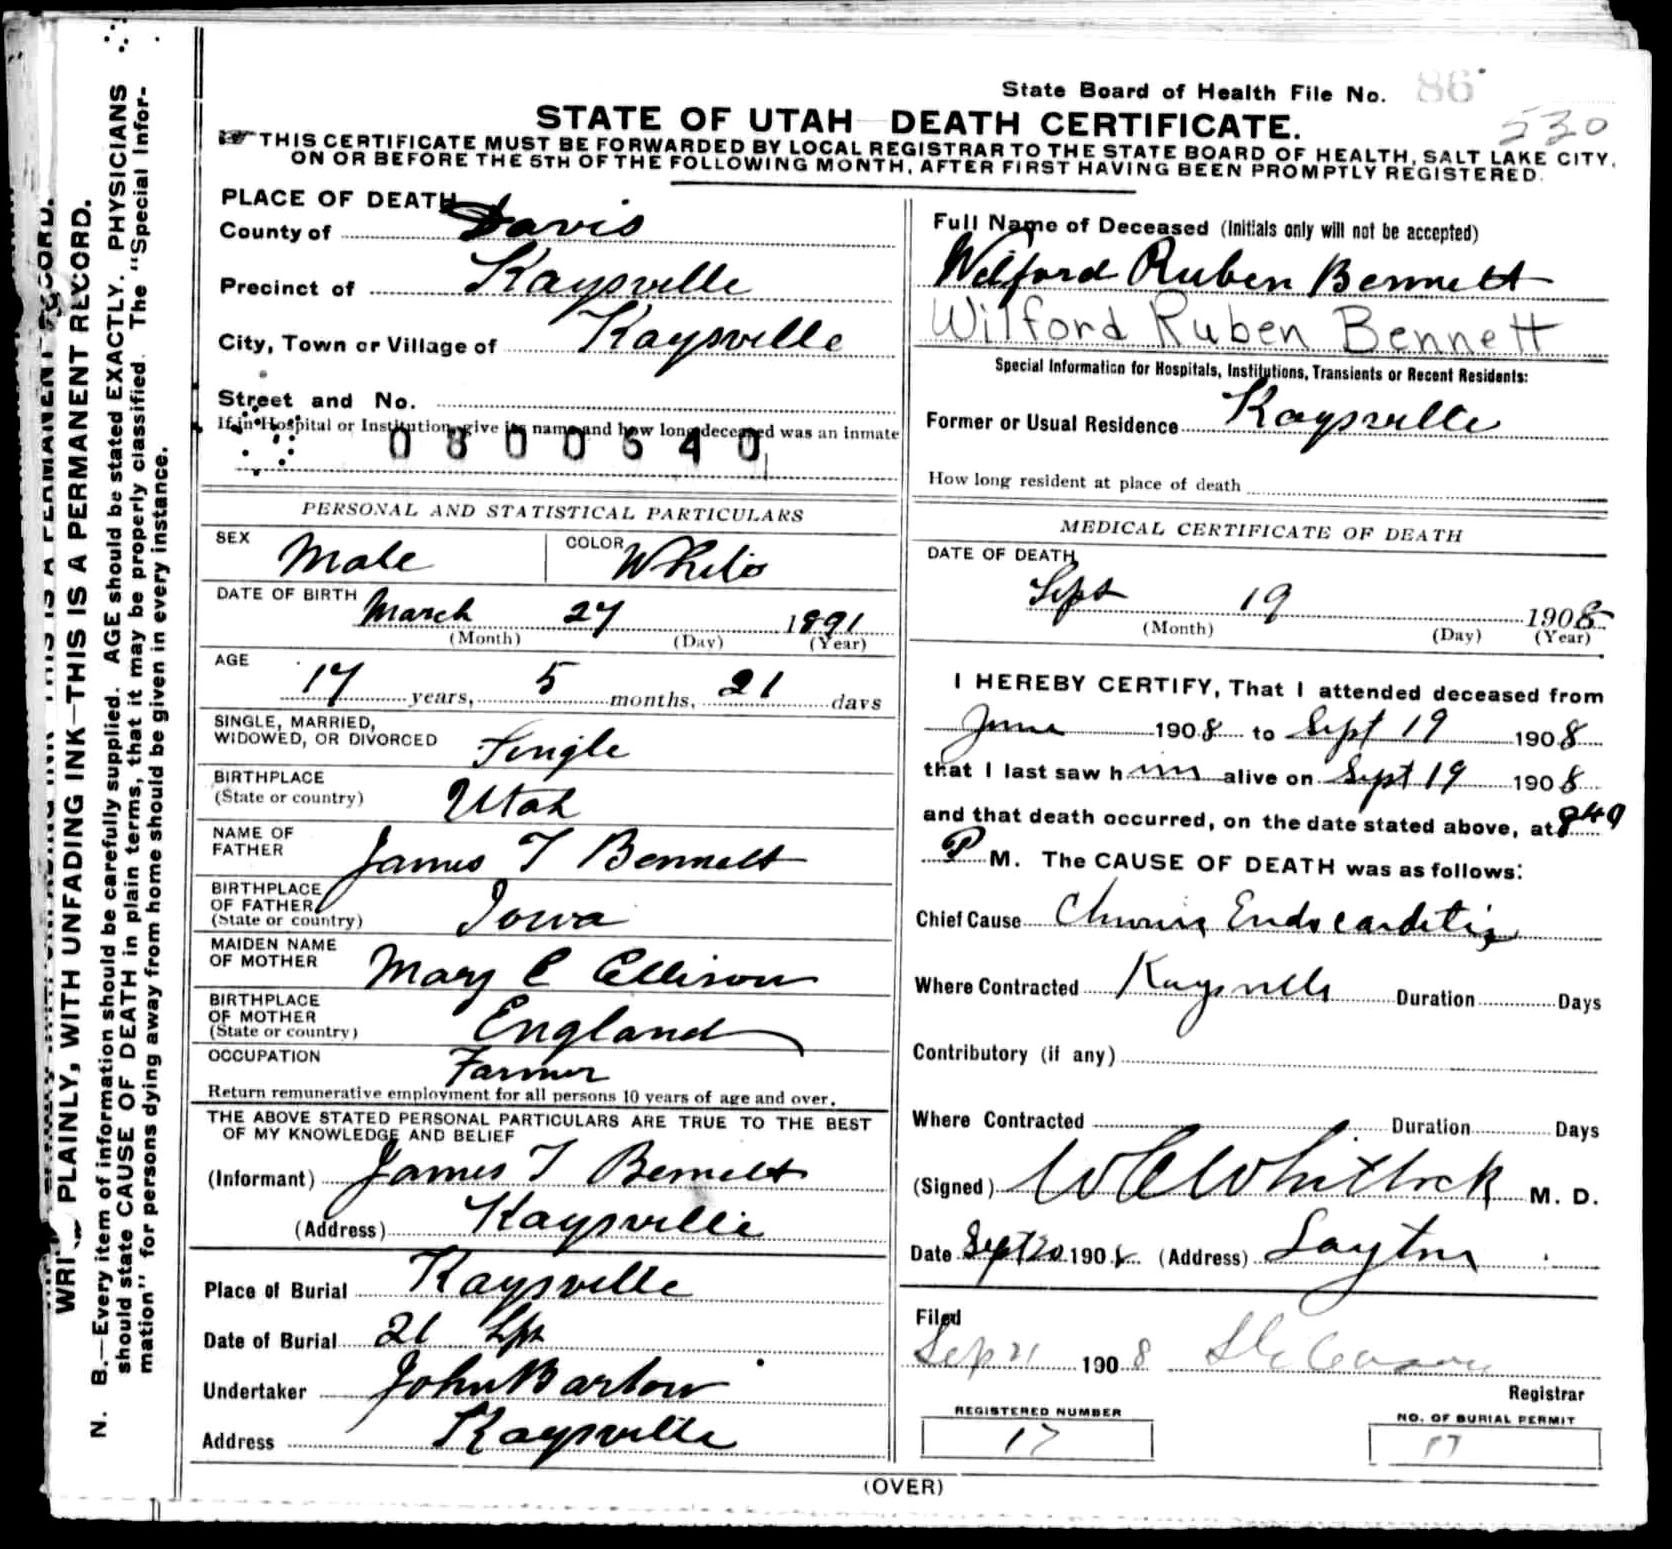 State Board of Health File No. 86
530
STATE OF UTAH DEATH CERTIFICATE.
THIS CERTIFICATE MUST BE FORWARDED BY LOCAL REGISTRAR TO THE STATE BOARD OF HEALTH, SALT LAKE CITY,
ON OR BEFORE THE 5TH OF THE FOLLOWING MONTH, AFTER FIRST HAVING BEEN PROMPTLY REGISTERED.
WRITE PLAINLY, WITH UNFADING INK—THIS IS A PERMANENT RECORD.
N. B.—Every item of information should be carefully supplied. AGE should be stated EXACTLY. PHYSICIANS
should state CAUSE OF DEATH in plain terms, that it may be properly classified. The "Special Infor-
mation" for persons dying away from home should be given in every instance.
PLACE OF DEATH
County of Davis
Precinct of Kaysville
City, Town or Village of Kaysville
Street and No.
If in Hospital or Institution, give its name and how long deceased was an inmate
0800540
PERSONAL AND STATISTICAL PARTICULARS
SEX Male COLOR White
DATE OF BIRTH March 27 1891
(Month) (Day) (Year)
AGE 17 years, 5 months, 21 days
SINGLE, MARRIED,
WIDOWED, OR DIVORCED Single
BIRTHPLACE
(State or country) Utah
NAME OF
FATHER James T Bennett
BIRTHPLACE
OF FATHER
(State or country) Iowa
MAIDEN NAME
OF MOTHER Mary E Ellison
BIRTHPLACE
OF MOTHER
(State or country) England
OCCUPATION Farmer
Return remunerative employment for all persons 10 years of age and over.
THE ABOVE STATED PERSONAL PARTICULARS ARE TRUE TO THE BEST
OF MY KNOWLEDGE AND BELIEF
(Informant) James T Bennett
(Address) Kaysville
Place of Burial Kaysville
Date of Burial 21 Sept
Undertaker John Barton
Address Kaysville
Full Name of Deceased (Initials only will not be accepted)
Wilford Ruben Bennett
Wilford Ruben Bennett
Special Information for Hospitals, Institutions, Transients or Recent Residents:
Former or Usual Residence Kaysville
How long resident at place of death
MEDICAL CERTIFICATE OF DEATH
DATE OF DEATH
Sept 19 1908
(Month) (Day) (Year)
I HEREBY CERTIFY, That I attended deceased from
June 1908 to Sept 19 1908
that I last saw him alive on Sept 19 1908
and that death occurred, on the date stated above, at 840
P M. The CAUSE OF DEATH was as follows:
Chief Cause Chronic Endocarditis
Where Contracted Kaysville Duration Days
Contributory (if any)
Where Contracted Duration Days
(Signed) W C Whitlock M. D.
Date Sept 20 1908 (Address) Layton
Filed
Sep 21 1908
Registrar
REGISTERED NUMBER
17
NO. OF BURIAL PERMIT
17
(OVER)